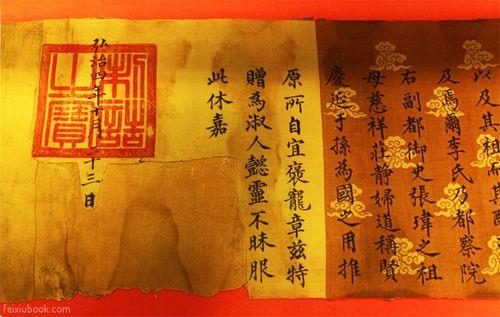 以及其祖而
及焉爾李氏乃都察院
右副都御史張瑋之祖
母慈祥莊靜婦道稱賢
慶延于孫為國之用推
原所自宜褒寵章茲特
贈為淑人懿靈不昧服
此休嘉
弘治四年十月二十三日
制誥之寶
feixiubook.com